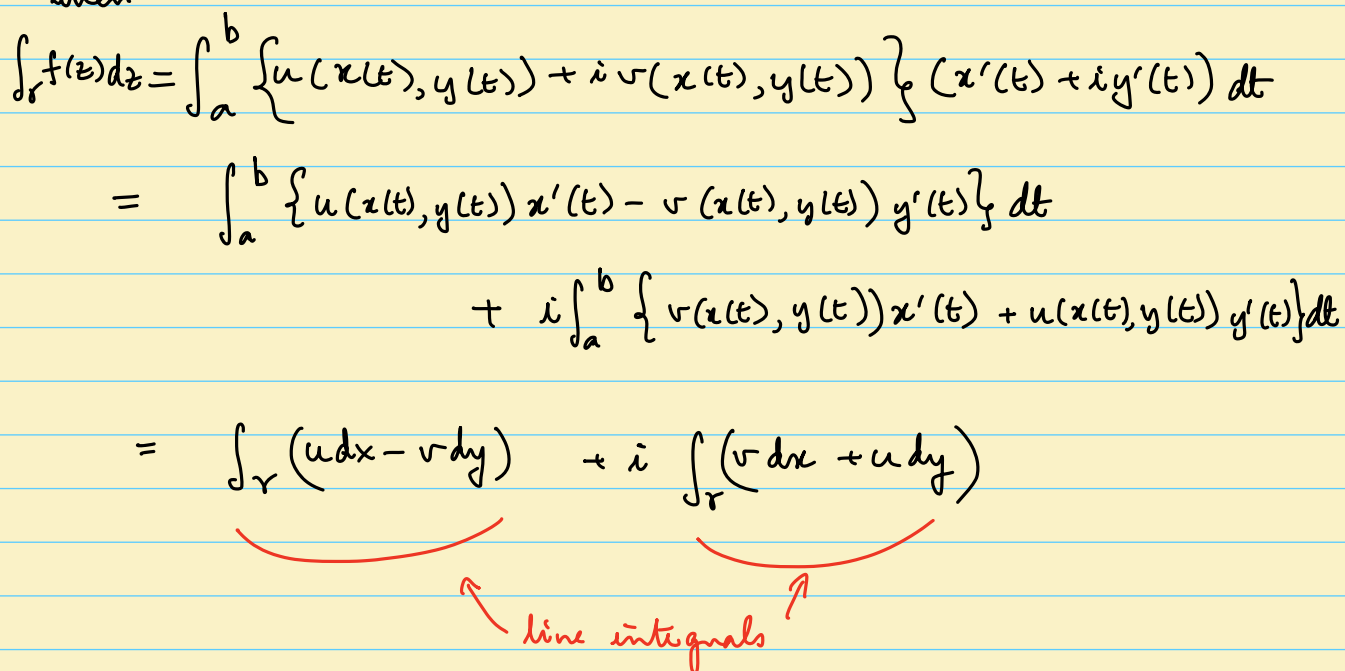 ∫_γ f(z)dz = ∫_a^b {u(x(t), y(t)) + i v(x(t), y(t))} (x'(t) + i y'(t)) dt
= ∫_a^b {u(x(t), y(t)) x'(t) − v(x(t), y(t)) y'(t)} dt
+ i ∫_a^b {v(x(t), y(t)) x'(t) + u(x(t), y(t)) y'(t)} dt
= ∫_γ (u dx − v dy) + i ∫_γ (v dx + u dy)
line integrals